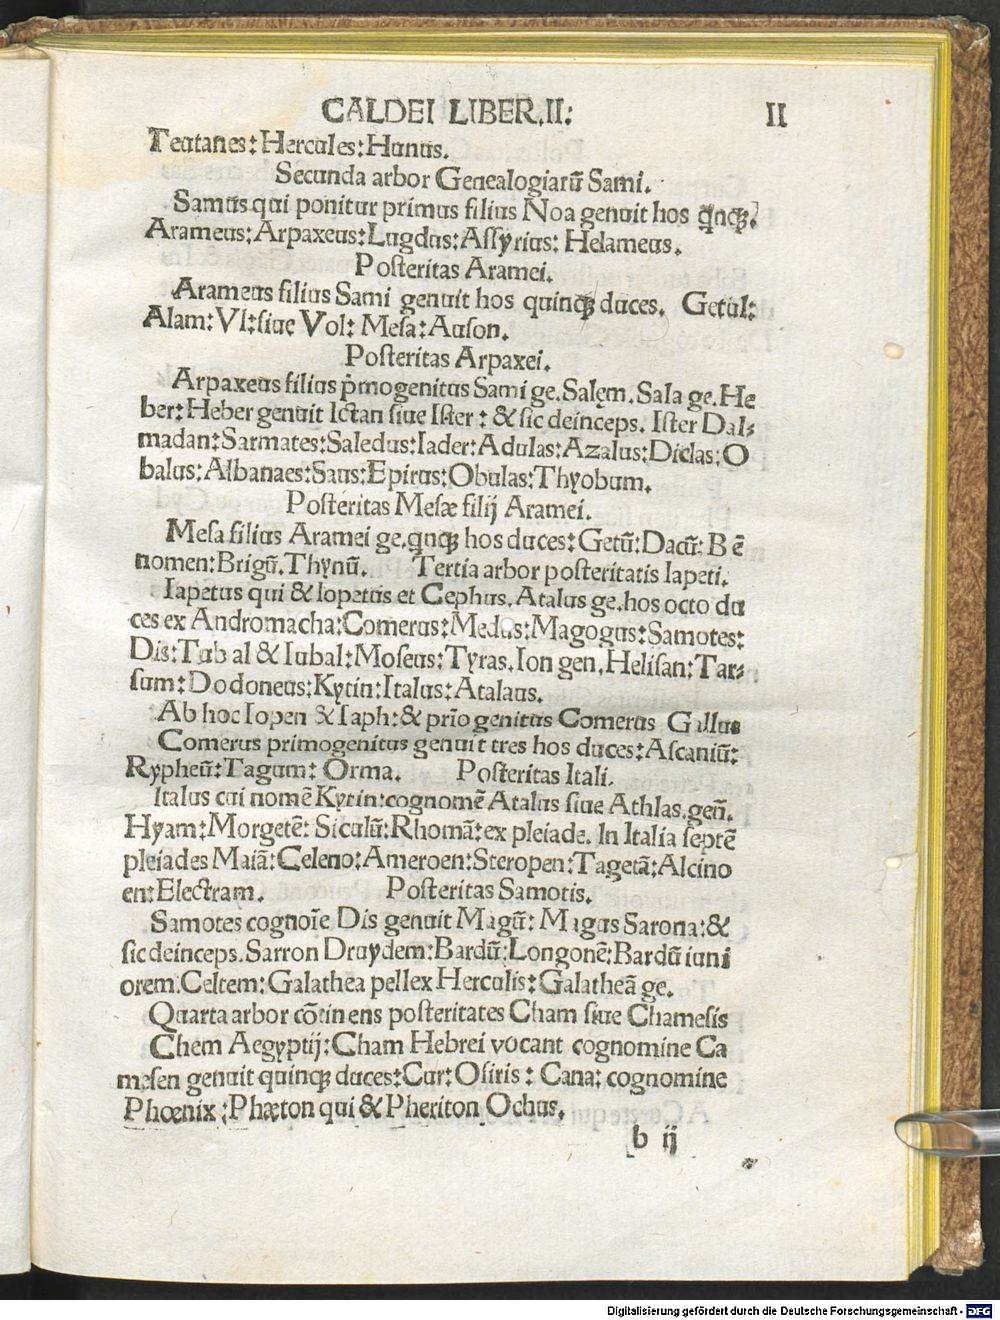 CALDEI LIBER.II: II
Teutanes: Hercules: Hunus.
Secunda arbor Genealogiarũ Sami.
Samus qui ponitur primus filius Noa genuit hos
Arameus: Arpaxeus: Lugdus: Aſſyrius: Helameus.
Poſteritas Aramei.
Arameus filius Sami genuit hos quinqꝫ duces. Getul:
Alam: Vl: ſiue Vol: Meſa: Auſon.
Poſteritas Arpaxei.
Arpaxeus filius p̃mogenitus Sami ge. Salem. Sala ge. He
ber: Heber genuit Ictan ſiue Iſter: & ſic deinceps. Iſter Dal⸗
madan: Sarmates: Saledus: Iader: Adulas: Azalus: Diclas: O
balus: Albanaes: Saus: Epirus: Obulas: Thyobum.
Poſteritas Meſæ filij Aramei.
Meſa filius Aramei ge. q̃nqꝫ hos duces: Getũ: Dacũ: Bẽ
nomen: Brigũ. Thynũ. Tertia arbor poſteritatis Iapeti.
Iapetus qui & Iopetus et Cephus. Atalus ge. hos octo du
ces ex Andromacha: Comerus: Medus: Magogus: Samotes:
Dis: Tub al & Iubal: Moſeus: Tyras. Ion gen. Heliſan: Tar⸗
ſum: Dodoneus: Kytin: Italus: Atalaus.
Ab hoc Iopen & Iaph: & prĩo genitus Comerus Gallus
Comerus primogenitus genuit tres hos duces: Aſcaniũ:
Rypheũ: Tagum: Orma. Poſteritas Itali.
Italus cui nomẽ Kytin: cognomẽ Atalus ſiue Athlas. geñ.
Hyam: Morgetẽ: Siculũ: Rhomã: ex pleiade. In Italia ſeptẽ
pleiades Maiã: Celeno: Ameroen: Steropen: Tagetã: Alcino
en: Electram. Poſteritas Samotis.
Samotes cognoĩe Dis genuit Magũ: Magus Sarona: &
ſic deinceps. Sarron Druydem: Bardũ: Longonẽ: Bardũ iuni
orem. Celtem: Galathea pellex Herculis: Galatheã ge.
Quarta arbor cõtinens poſteritates Cham ſiue Chameſis
Chem Aegyptij: Cham Hebrei vocant cognomine Ca
meſen genuit quinqꝫ duces: Cur: Oſiris: Cana: cognomine
Phœnix: Phæton qui & Pheriton Ochus.
b ij
Digitalisierung gefördert durch die Deutsche Forschungsgemeinschaft - DFG